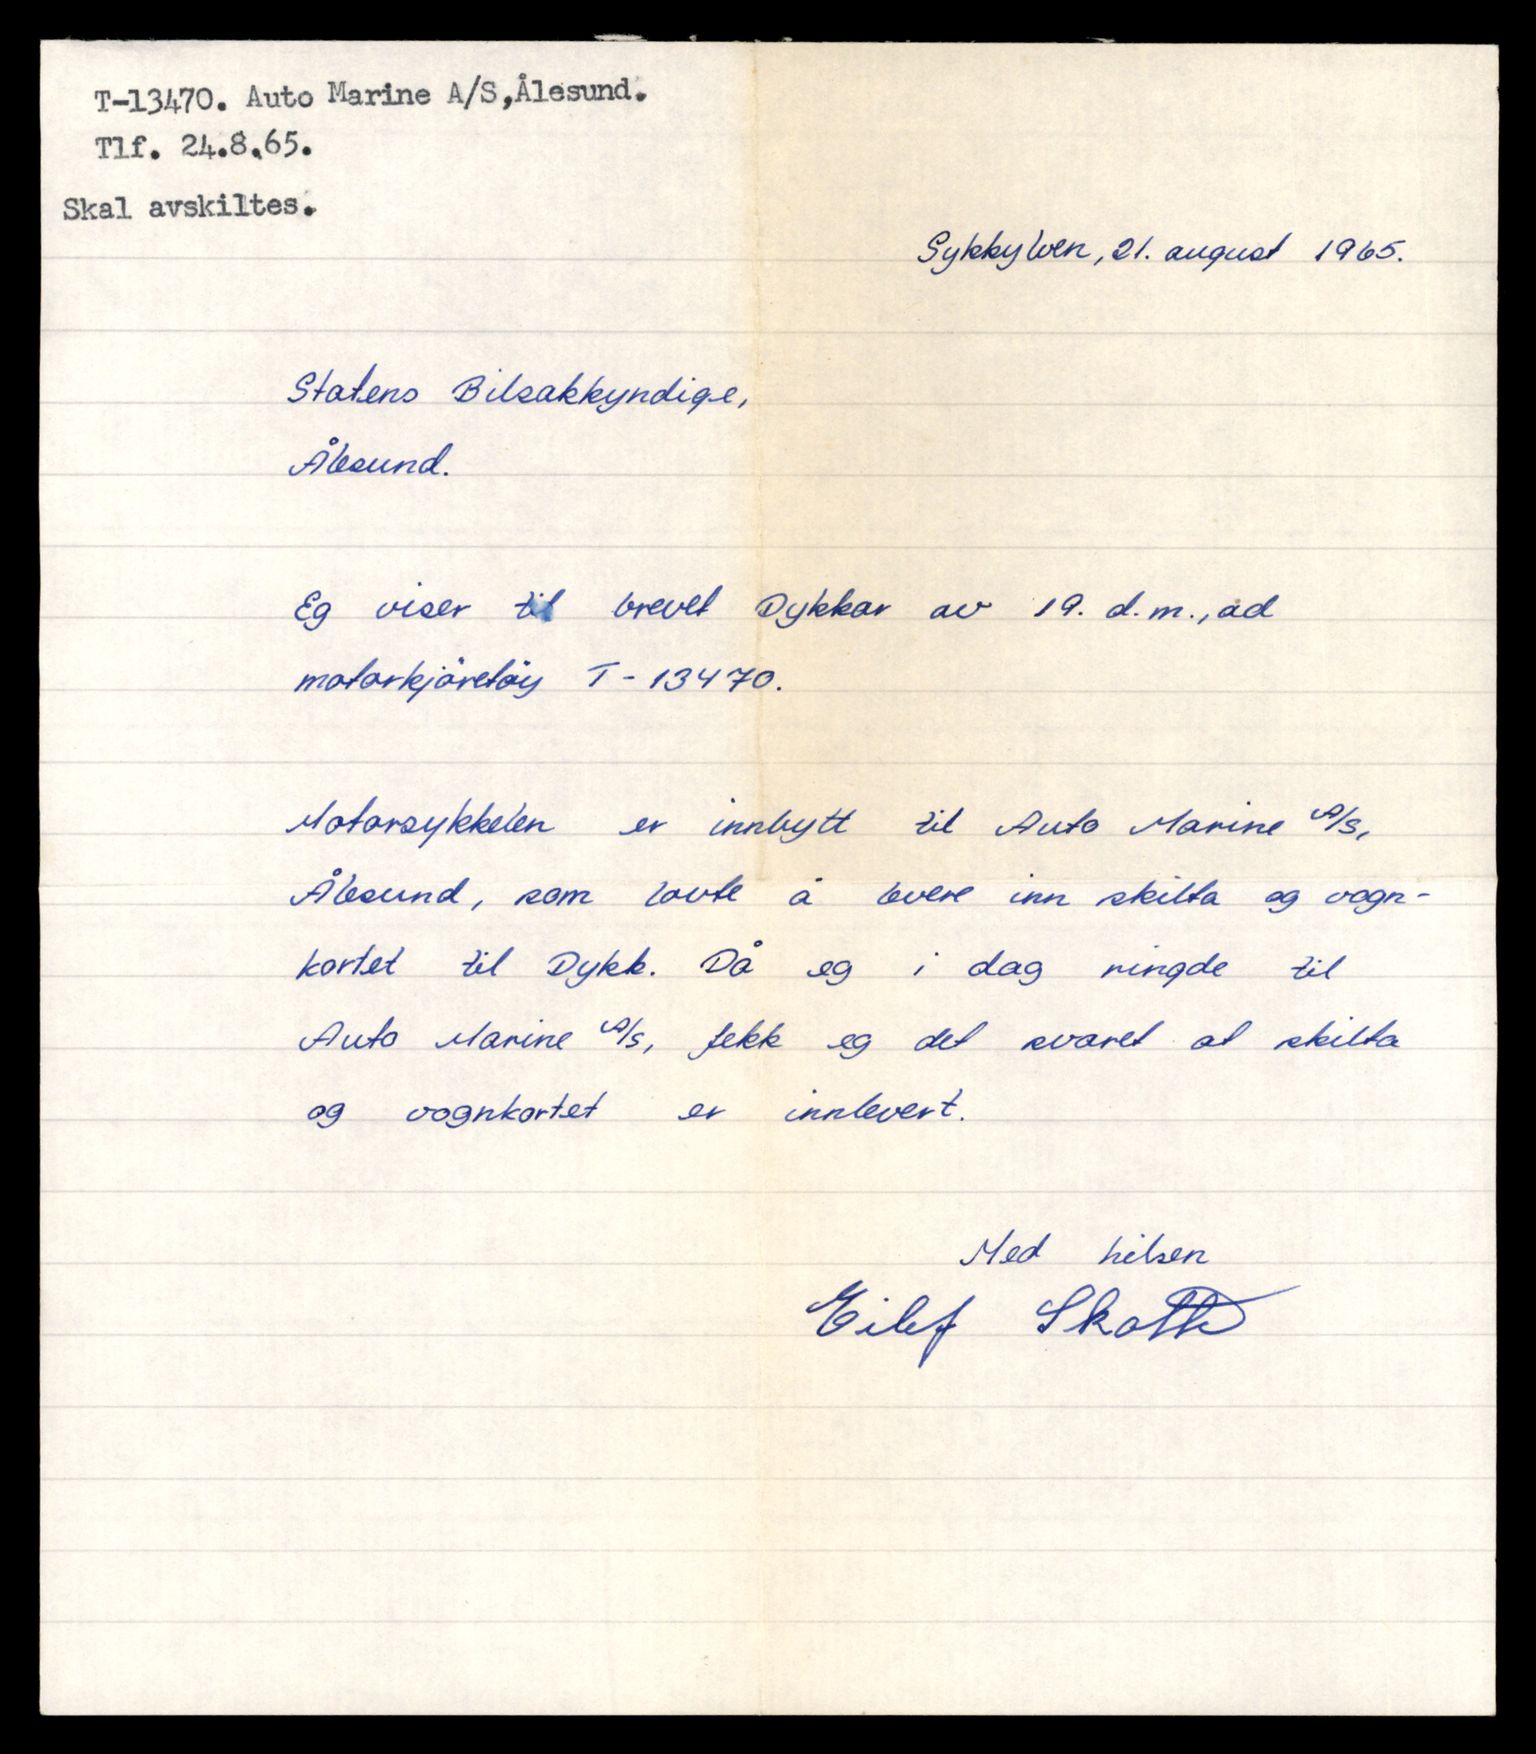 T-13470. Auto Marine A/S,Ålesund.
Tlf. 24.8.65.
Skal avskiltes.
Sykkylven, 21. august 1965.
Statens Bilsakkyndige,
Ålesund.
Eg viser til brevet Dykkar av 19. d.m., ad
motorkjöretöy T-13470.
Motorsykkelen er innbytt til Auto Marine A/S,
Ålesund, som lovte å levere inn skilta og vogn-
kortet til Dykk. Då eg i dag ringde til
Auto Marine A/S, fekk eg det svaret at skilta
og vognkortet er innlevert.
Med helsen
Eilef